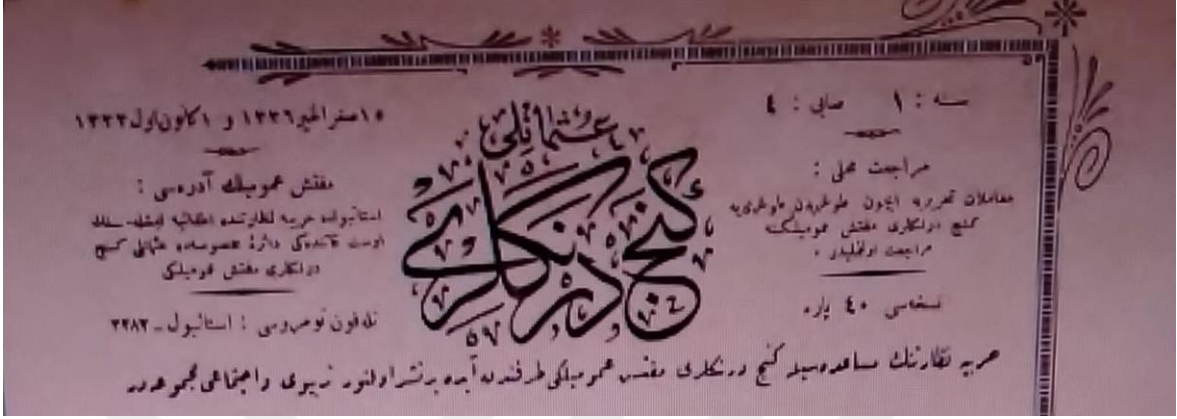 سنه : ١ صایی : ٤
مراجعت محلی :
معاملات تحریریه ایچون طوغریدن طوغری‌یه
كنج درنكلری مفتش عمومیلكنه
مراجعت اولنملیدر .
نسخه‌سی ٤٠ پاره
عثمانلی
كنج درنكلری
١٥ صفر الخیر ١٣٣٦ و ١ كانون اول ١٣٣٣
مفتش عمومیلك آدره‌سی :
استانبولده حربیه نظارتنده اطفائیه
اوست قاتنده‌كی دائرهٔ مخصوصه‌ده عثمانلی كنج
درنكلری مفتش عمومیلكی
تله‌فون نومروسی : استانبول - ٢٢٨٢
حربیه نظارتنك مساعده‌سیله كنج درنكلری مفتش عمومیلكی طرفندن آیده بر نشر اولنور تربیوی و اجتماعی مجموعه‌در